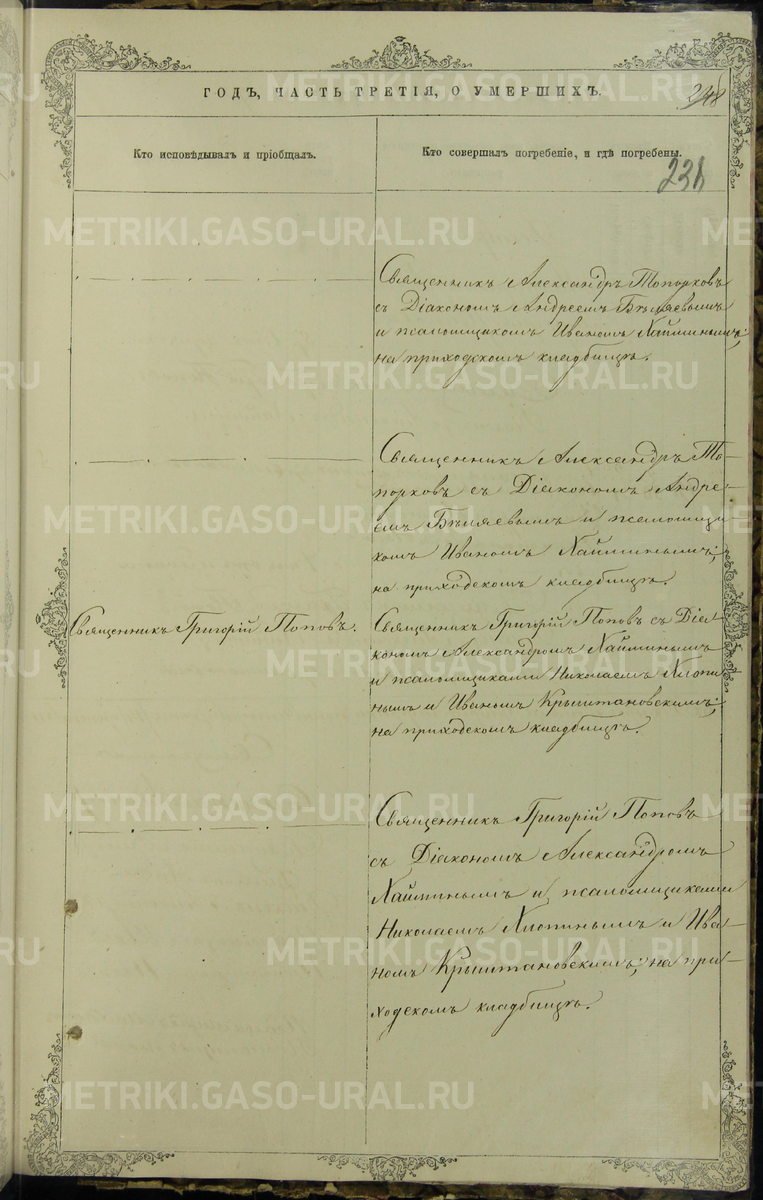 ГОДЪ, ЧАСТЬ ТРЕТІЯ, О УМЕРШИХЪ.
248
Кто исповѣдывалъ и пріобщалъ.
Кто совершалъ погребеніе, и гдѣ погребены.
Священникъ Александръ Топорковъ
съ Діакономъ Андреемъ Бѣляевымъ
и псаломщикомъ Иваномъ Хайминымъ;
на приходскомъ кладбищѣ.
Священникъ Александръ То-
порковъ съ Діакономъ Андре-
емъ Бѣляевымъ и псаломщи-
комъ Иваномъ Хайминымъ;
на приходскомъ кладбищѣ.
Священникъ Григорій Поповъ.
Священникъ Григорій Поповъ съ Діа-
кономъ Александромъ Хайминымъ
и псаломщиками Николаемъ Хлопи-
нымъ и Иваномъ Крыштановскимъ;
на приходскомъ кладбищѣ.
Священникъ Григорій Поповъ
съ Діакономъ Александромъ
Хайминымъ и псаломщиками
Николаемъ Хлопинымъ и Ива-
номъ Крыштановскимъ; на при-
ходскомъ кладбищѣ.
METRIKI.GASO-URAL.RU